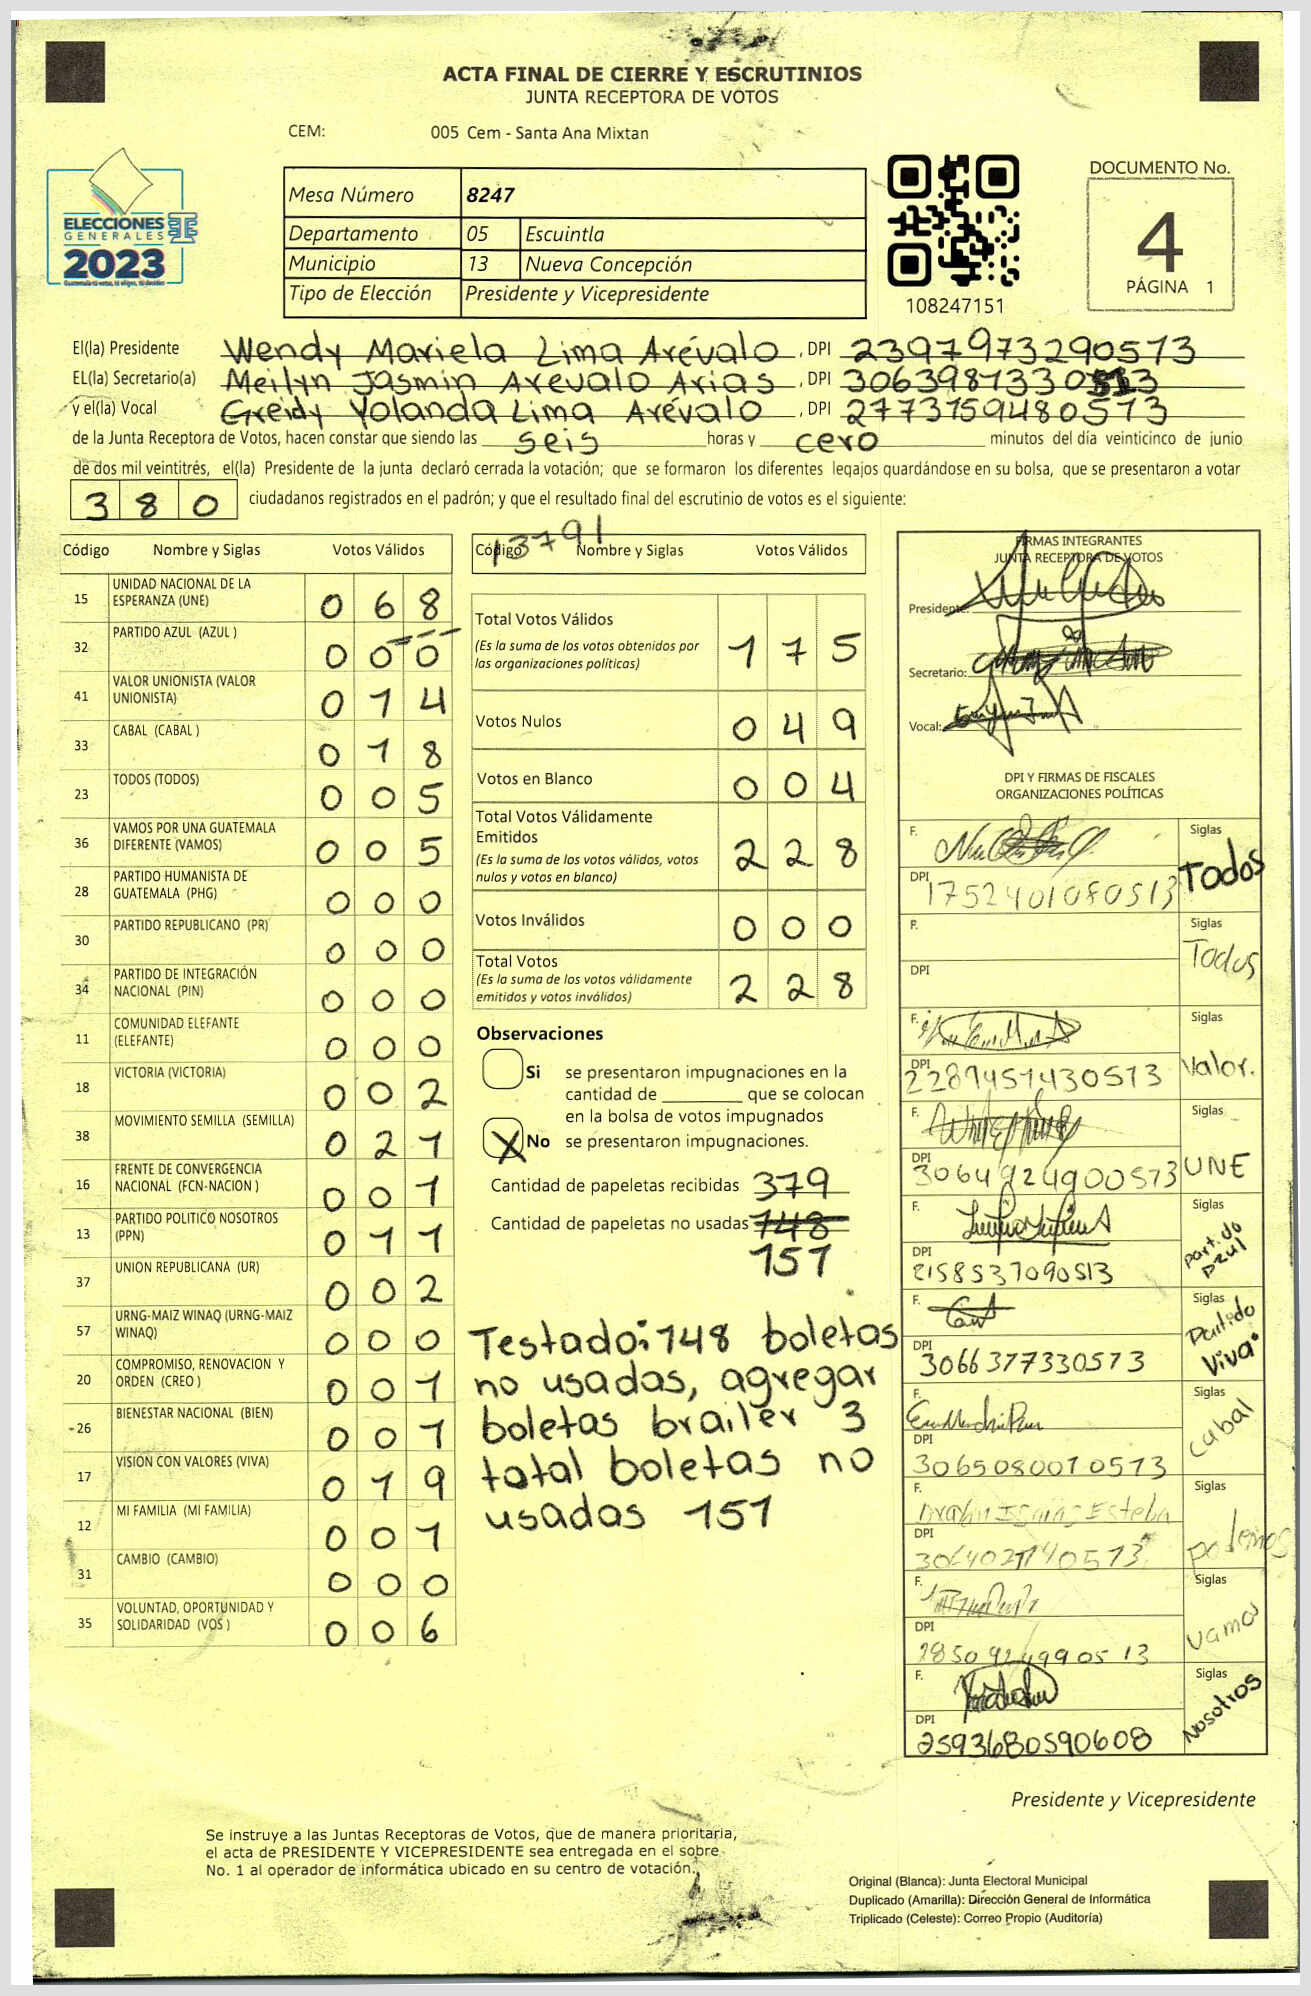 ACTA FINAL DE CIERRE Y ESCRUTINIOS
JUNTA RECEPTORA DE VOTOS
CEM: 005 Cem - Santa Ana Mixtan
ELECCIONES
GENERALES
2023
Mesa Número 8247
Departamento 05 Escuintla
Municipio 13 Nueva Concepción
Tipo de Elección Presidente y Vicepresidente
108247151
DOCUMENTO No.
4
PÁGINA 1
El(la) Presidente Wendy Mariela Lima Arévalo, DPI 2397973290513
EL(la) Secretario(a) Meilyn Jasmin Arevalo Arias, DPI 3063987330513
y el(la) Vocal Greidy Yolanda Lima Arévalo, DPI 2773759480513
de la Junta Receptora de Votos, hacen constar que siendo las seis horas y cero minutos del día veinticinco de junio
de dos mil veintitrés, el(la) Presidente de la junta declaró cerrada la votación; que se formaron los diferentes legajos guardándose en su bolsa, que se presentaron a votar
380 ciudadanos registrados en el padrón; y que el resultado final del escrutinio de votos es el siguiente:
Código Nombre y Siglas Votos Válidos
15 UNIDAD NACIONAL DE LA ESPERANZA (UNE) 068
32 PARTIDO AZUL (AZUL ) 000
41 VALOR UNIONISTA (VALOR UNIONISTA) 014
33 CABAL (CABAL ) 018
23 TODOS (TODOS) 005
36 VAMOS POR UNA GUATEMALA DIFERENTE (VAMOS) 005
28 PARTIDO HUMANISTA DE GUATEMALA (PHG) 000
30 PARTIDO REPUBLICANO (PR) 000
34 PARTIDO DE INTEGRACIÓN NACIONAL (PIN) 000
11 COMUNIDAD ELEFANTE (ELEFANTE) 000
18 VICTORIA (VICTORIA) 002
38 MOVIMIENTO SEMILLA (SEMILLA) 021
16 FRENTE DE CONVERGENCIA NACIONAL (FCN-NACION ) 001
13 PARTIDO POLITICO NOSOTROS (PPN) 011
37 UNION REPUBLICANA (UR) 002
57 URNG-MAIZ WINAQ (URNG-MAIZ WINAQ) 000
20 COMPROMISO, RENOVACION Y ORDEN (CREO ) 001
26 BIENESTAR NACIONAL (BIEN) 001
17 VISION CON VALORES (VIVA) 019
12 MI FAMILIA (MI FAMILIA) 001
31 CAMBIO (CAMBIO) 000
35 VOLUNTAD, OPORTUNIDAD Y SOLIDARIDAD (VOS ) 006
13791
Código Nombre y Siglas Votos Válidos
Total Votos Válidos 175
(Es la suma de los votos obtenidos por
las organizaciones políticas)
Votos Nulos 049
Votos en Blanco 004
Total Votos Válidamente
Emitidos 228
(Es la suma de los votos válidos, votos
nulos y votos en blanco)
Votos Inválidos 000
Total Votos 228
(Es la suma de los votos válidamente
emitidos y votos inválidos)
Observaciones
Si se presentaron impugnaciones en la
cantidad de ________ que se colocan
en la bolsa de votos impugnados
X No se presentaron impugnaciones.
Cantidad de papeletas recibidas 379
Cantidad de papeletas no usadas 148
151
Testado: 148 boletas
no usadas, agregar
boletas brailer 3
total boletas no
usadas 151
FIRMAS INTEGRANTES
JUNTA RECEPTORA DE VOTOS
Presidente:
Secretario:
Vocal:
DPI Y FIRMAS DE FISCALES
ORGANIZACIONES POLÍTICAS
F. Siglas
DPI 1752401080513 Todos
F. Siglas
DPI Todos
F. Siglas
DPI 2289451430513 Valor.
F. Siglas
DPI 3064924900513 UNE
F. Siglas
DPI 2158537090513 Partido Azul
F. Siglas
DPI 3066377330513 Partido Viva
F. Siglas
DPI 3065080010513 Cabal
F. Siglas
DPI podemos
F. Siglas
DPI 2850924990513 Vamos
F. Siglas
DPI 2593680590608 Nosotros
Presidente y Vicepresidente
Se instruye a las Juntas Receptoras de Votos, que de manera prioritaria,
el acta de PRESIDENTE Y VICEPRESIDENTE sea entregada en el sobre
No. 1 al operador de informática ubicado en su centro de votación.
Original (Blanca): Junta Electoral Municipal
Duplicado (Amarilla): Dirección General de Informática
Triplicado (Celeste): Correo Propio (Auditoría)